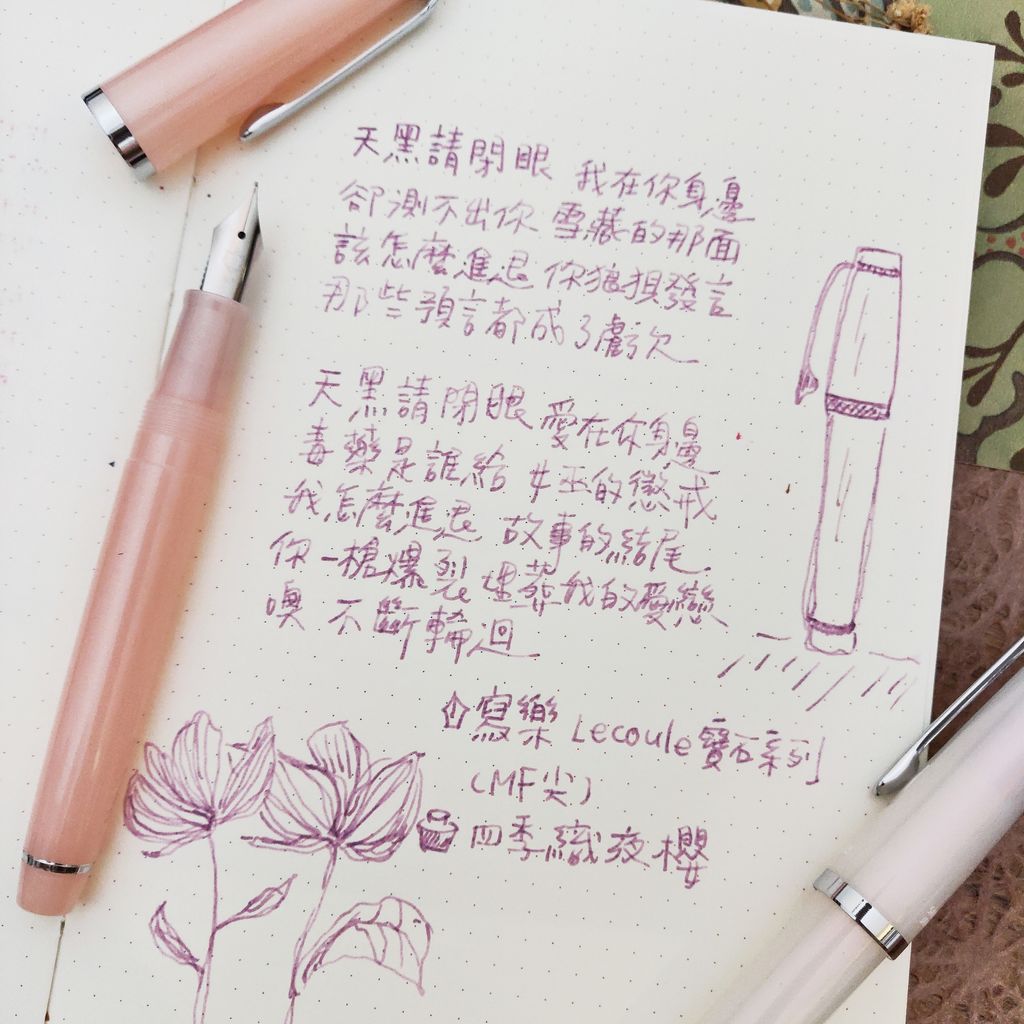 天黑請閉眼 我在你身邊
卻測不出你 雪藏的那面
該怎麼進退 你狼狽發言
那些預言都成了虧欠
天黑請閉眼 愛在你身邊
毒藥是誰給 女巫的懲戒
我怎麼進退 故事的結尾
你一槍爆裂 埋葬我的愛戀
噢 不斷輪迴
寫樂 Lecoule 寶石系列
(MF尖)
四季織夜櫻